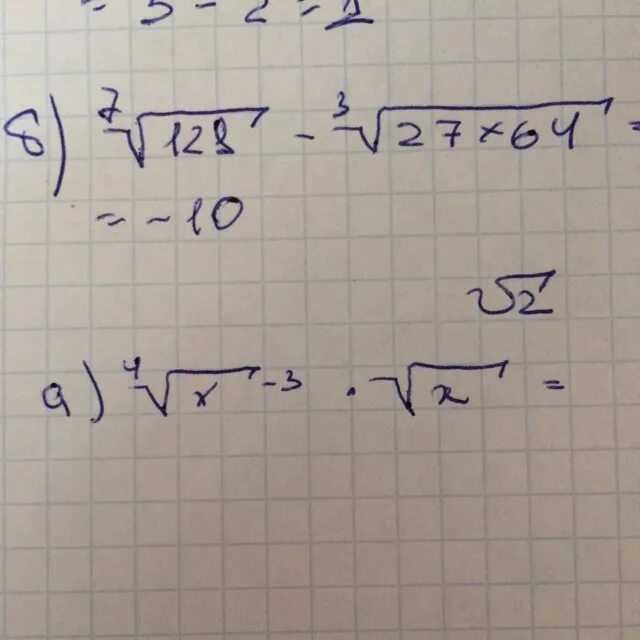 = 3 - 2 = 1
б) ⁷√128 - ³√27×64 =
= -10
√2
а) ⁴√x -3 · √x =